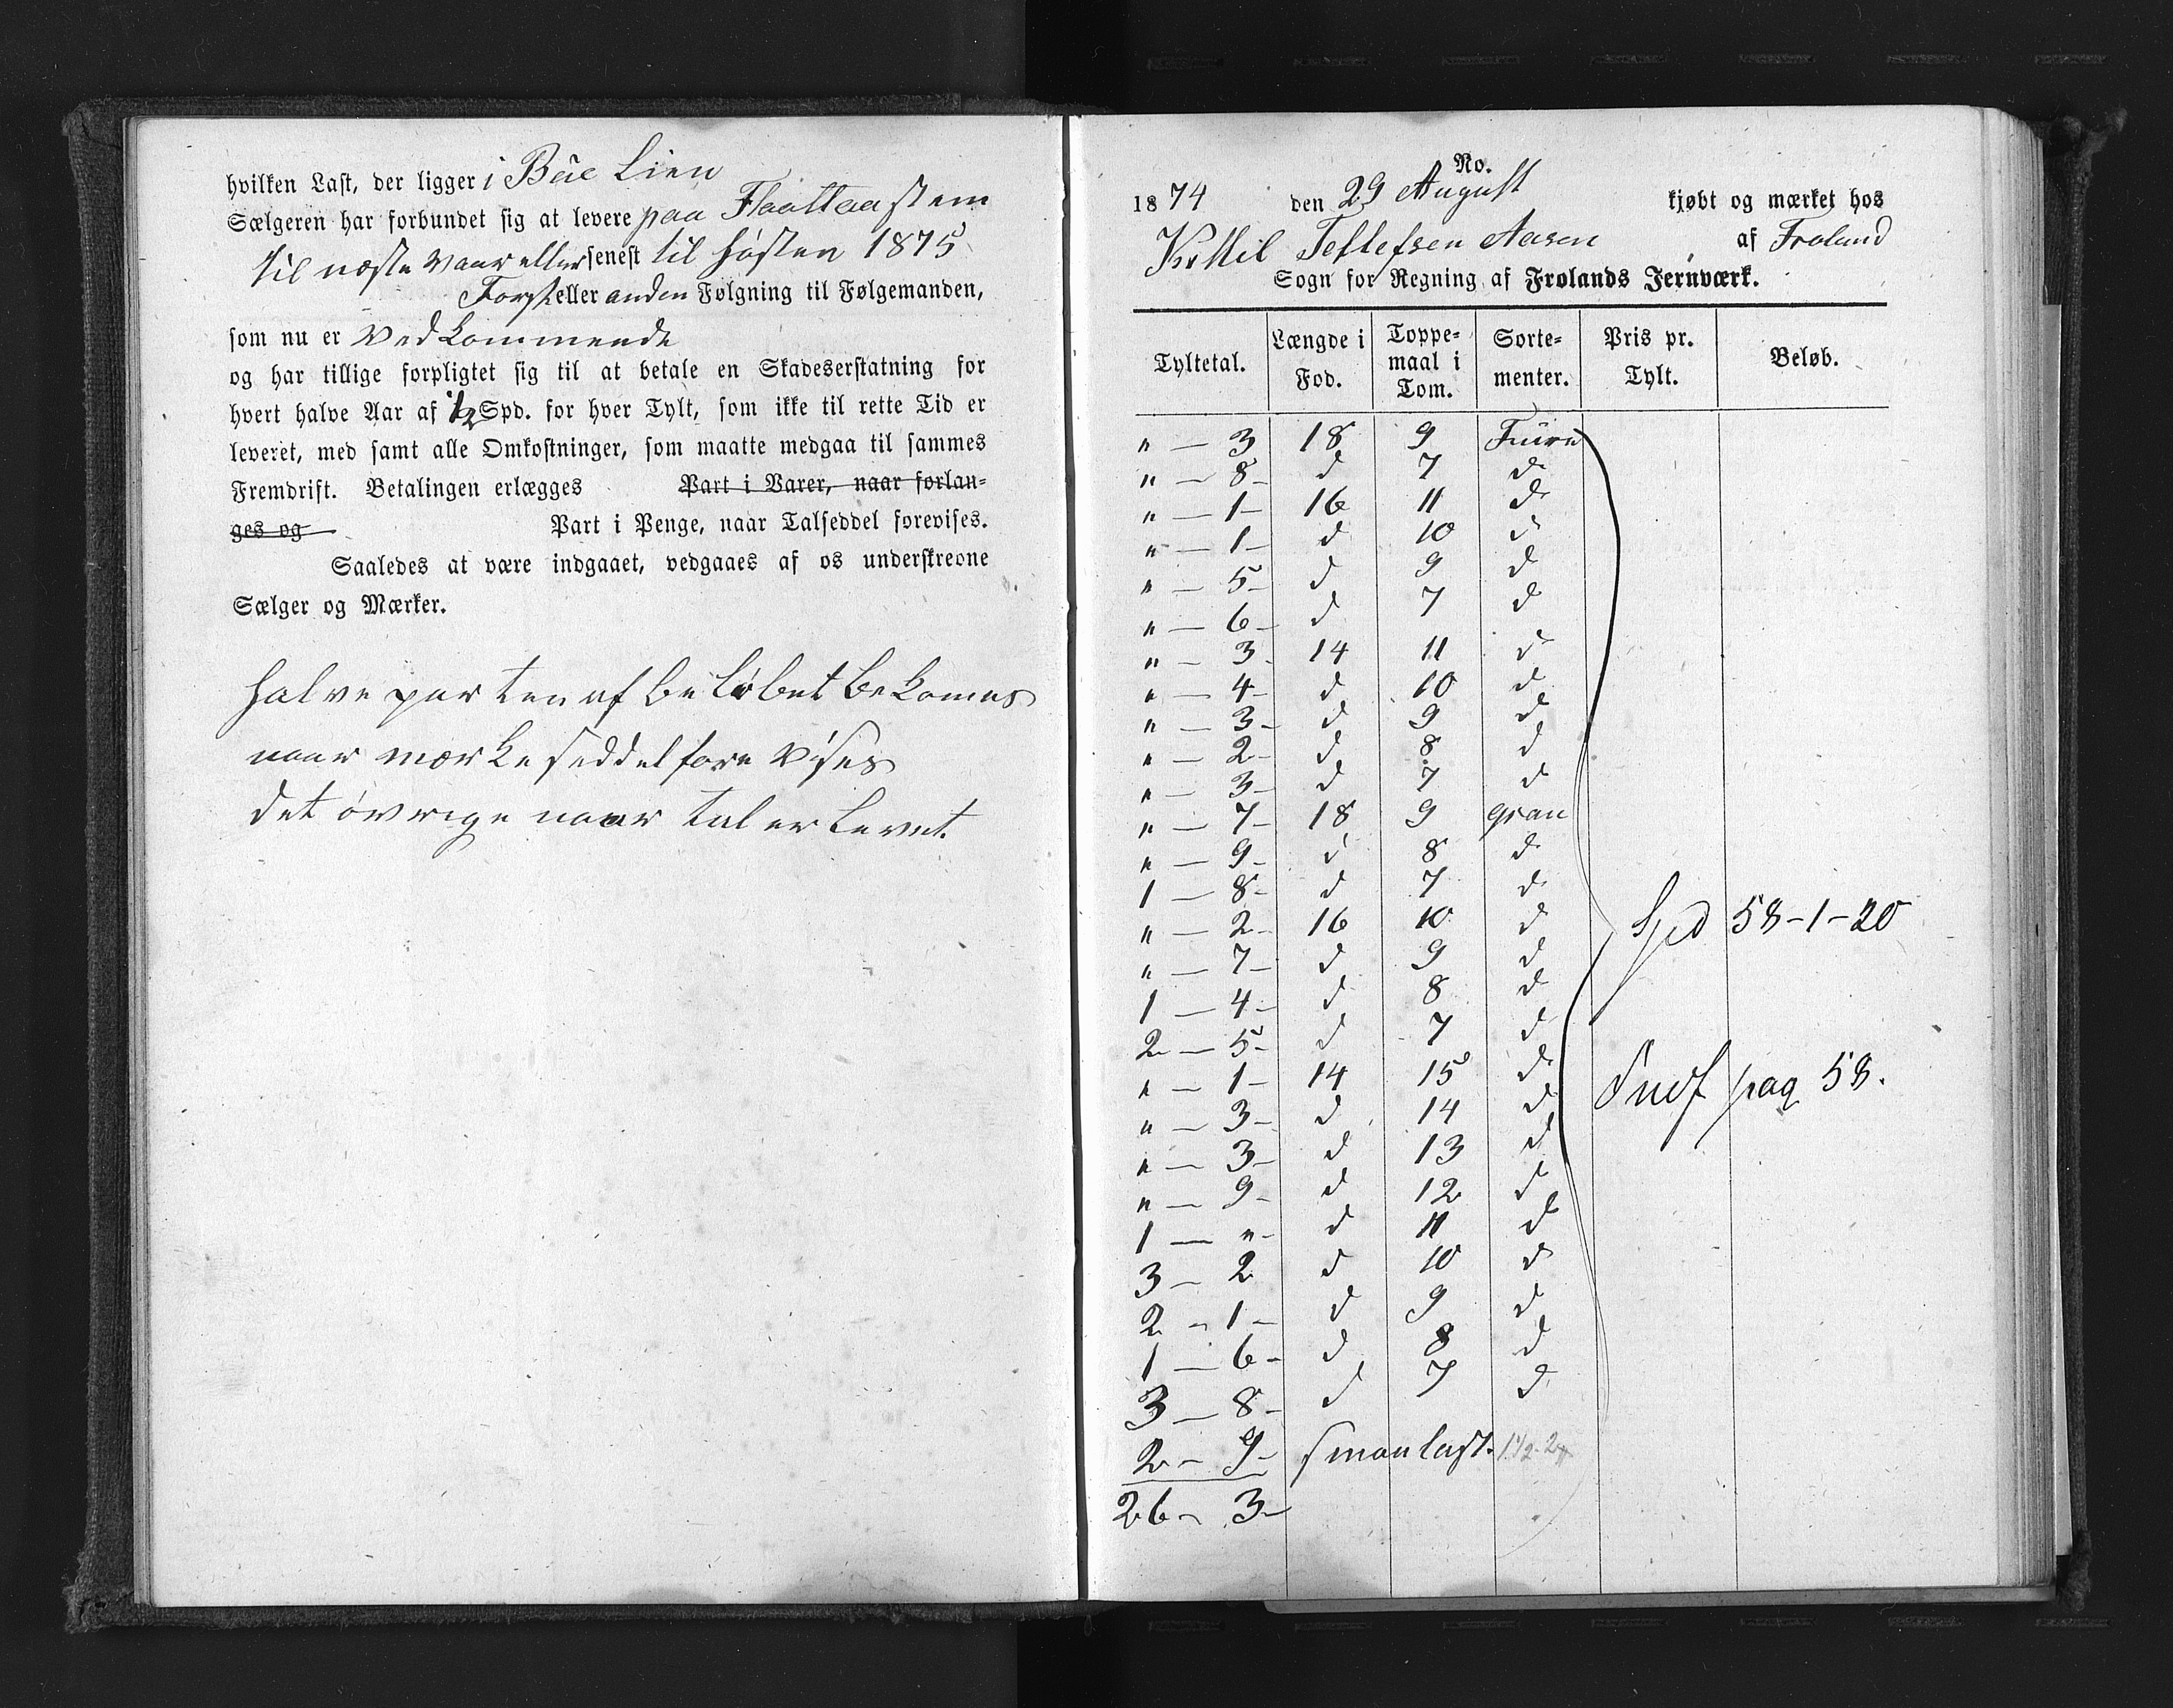 hvilken Last, der ligger i Böe Lien
Sælgeren har forbundet sig at levere paa Flaattaasten
til næste Vaar eller senest til høsten 1875
Første eller anden Følgning til Følgemanden,
som nu er Vedkommende
og har tillige forpligtet sig til at betale en Skadeserstatning for
hvert halve Aar af 1/2 Spd. for hver Tylt, som ikke til rette Tid er
leveret, med samt alle Omkostninger, som maatte medgaa til sammes
Fremdrift. Betalingen erlægges Part i Varer, naar forlan-
ges og Part i Penge, naar Talseddel forevises.
Saaledes at være indgaaet, vedgaaes af os underskrevne
Sælger og Mærker.
halve parten af beløbet bekomes
naar mærke seddel fore vises
det øvrige naar tal er levert.
No.
1874 den 29 August kjøbt og mærket hos
Kittil Tellefsen Aasen af Froland
Sogn for Regning af Frolands Jernværk.
Tyltetal. Længde i Fod. Toppe-maal i Tom. Sorte-menter. Pris pr. Tylt. Beløb.
" — 3 18 9 Furu
" — 8 - d 7 d
" — 1 - 16 11 d
" — 1 - d 10 d
" — 5 - d 9 d
" — 6 - d 7 d
" — 3 - 14 11 d
" — 4 - d 10 d
" — 3 - d 9 d
" — 2 - d 8 d
" — 3 - d 7 d
" — 7 - 18 9 gran
" — 9 - d 8 d
1 — 8 - d 7 d
" — 2 - 16 10 d Spd 58-1-20
" — 7 - d 9 d
1 — 4 - d 8 d
2 — 5 - d 7 d
" — 1 - 14 15 d Indf pag 58.
" — 3 - d 14 d
" — 3 - d 13 d
" — 9 - d 12 d
1 — " - d 11 d
3 — 2 d 10 d
2 — 1 - d 9 d
1 — 6 - d 8 d
3 — 8 - d 7 d
2 — 9 - smaalast. 1 1/2-2
26 - 3 -